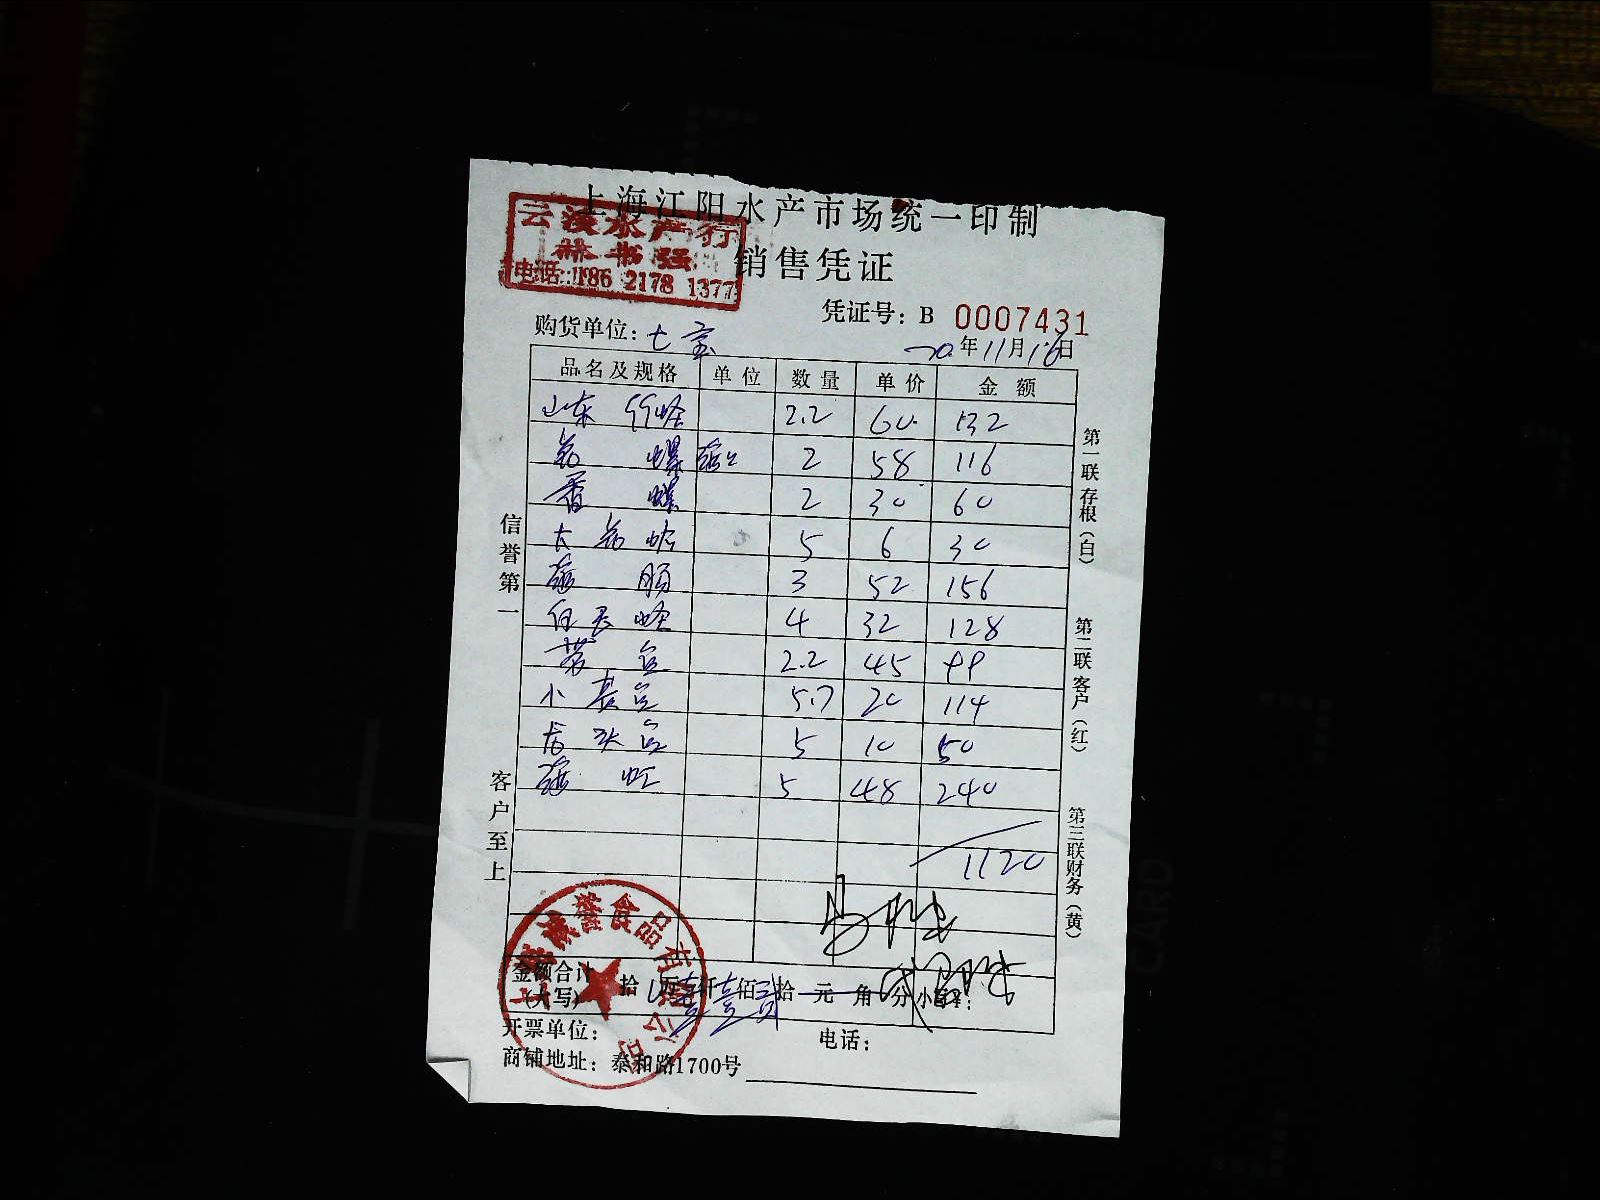 上海江阳水产市场统一印制
云 水产行
林书强
电话:186 2178 1377
销售凭证
凭证号: B 0007431
购货单位: 七宝
20年11月16日
品名及规格 单位 数量 单价 金额
山东 竹蛏 2.2 60 132
螺 2 58 116
香 螺 2 30 60
大 蛤 5 6 30
肠 3 52 156
蛏 4 32 128
2.2 45 99
小 5.7 20 114
头 5 10 50
虾 5 48 240
1120
信誉第一
客户至上
第一联存根(白)
第二联客户(红)
第三联财务(黄)
上海 誉食品有限公司
金额合计
(大写)
拾 万壹仟壹佰贰拾 元 角 分小写¥:
开票单位:
电话:
商铺地址: 泰和路1700号